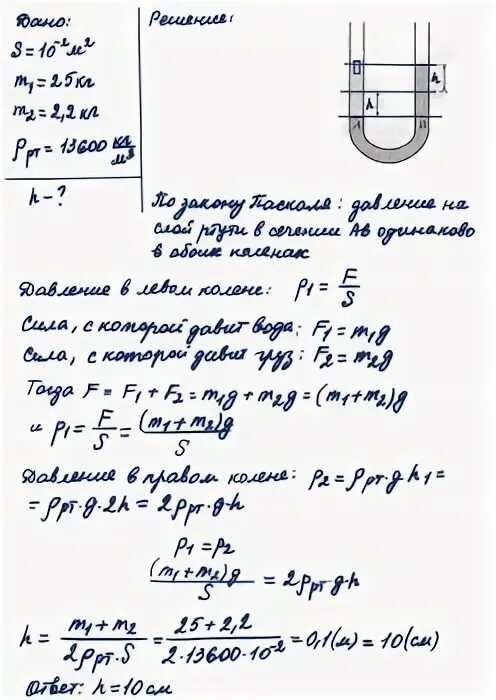 Дано:
S = 10⁻² м²
m₁ = 25 кг
m₂ = 2,2 кг
ρрт = 13600 кг/м³
h – ?
Решение:
h
h
A
B
По закону Паскаля: давление на
слой ртути в сечении АВ одинаково
в обоих коленах
Давление в левом колене: p₁ = F/S
Сила, с которой давит вода: F₁ = m₁g
Сила, с которой давит груз: F₂ = m₂g
Тогда F = F₁ + F₂ = m₁g + m₂g = (m₁ + m₂)g
и p₁ = F/S = (m₁ + m₂)g/S
Давление в правом колене: p₂ = ρрт·g·h₁ =
= ρрт·g·2h = 2ρрт·g·h
p₁ = p₂
(m₁ + m₂)g/S = 2ρрт·g·h
h = (m₁ + m₂)/(2ρрт·S) = (25 + 2,2)/(2·13600·10⁻²) = 0,1(м) = 10(см)
Ответ: h = 10 см